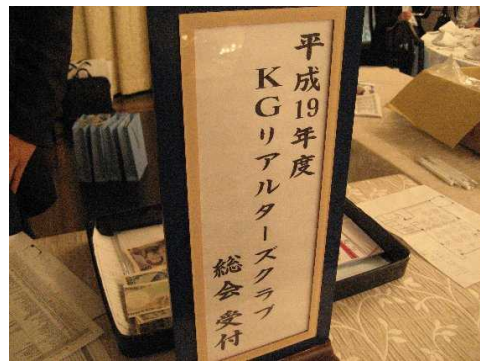 平成19年度
KGリアルターズクラブ
総会受付